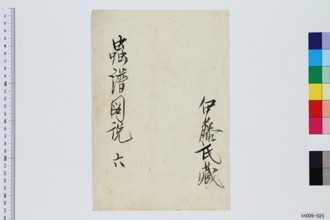 蟲譜図説 六
伊藤氏蔵